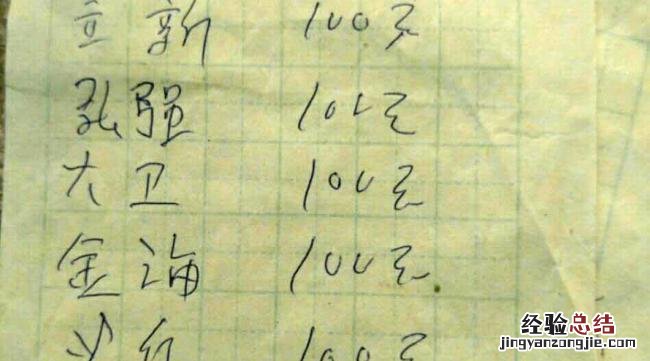 立新 100元
孔强 100元
大卫 100元
金海 100元
100元
经验总结
jingyanzongjie.com